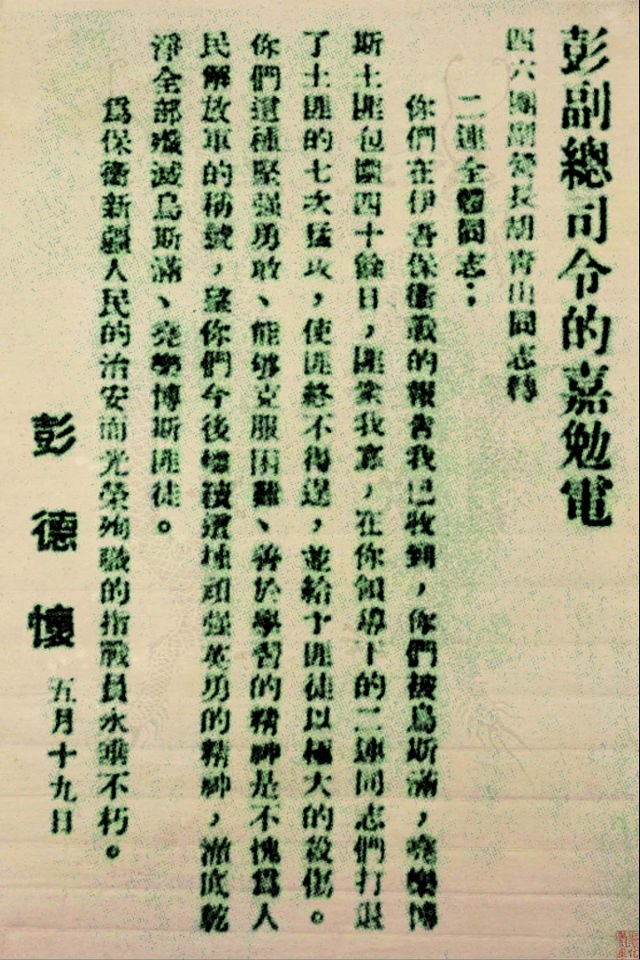 彭副總司令的嘉勉電
四六團副營長胡青山同志轉
二連全體同志：
你們在伊吾保衛戰的報告我已收到，你們被烏斯滿，堯樂博
斯土匪包圍四十餘日，匪衆我寡，在你領導下的二連同志們打退
了土匪的七次猛攻，使匪終不得逞，並給土匪徒以極大的殺傷。
你們這種堅强勇敢、能够克服困難、善於學習的精神是不愧爲人
民解放軍的稱號，望你們今後繼續發揚頑强英勇的精神，澈底乾
淨全部殲滅烏斯滿、堯樂博斯匪徒。
爲保衛新疆人民的治安而光榮殉職的指戰員永垂不朽。
彭德懷 五月十九日